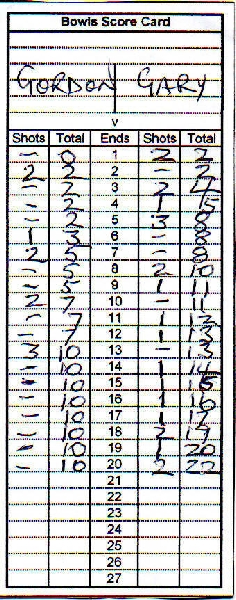 Bowls Score Card
GORDON GARY
v
Shots Total Ends Shots Total
– 0 1 2 2
2 2 2 – 2
– 2 3 2 4
– 2 4 1 5
– 2 5 3 8
1 3 6 – 8
2 5 7 – 8
– 5 8 2 10
– 5 9 1 11
2 7 10 – 11
– 7 11 1 12
– 7 12 1 13
3 10 13 – 13
– 10 14 1 14
– 10 15 1 15
– 10 16 1 16
– 10 17 1 17
– 10 18 2 19
– 10 19 1 20
– 10 20 2 22
21
22
23
24
25
26
27